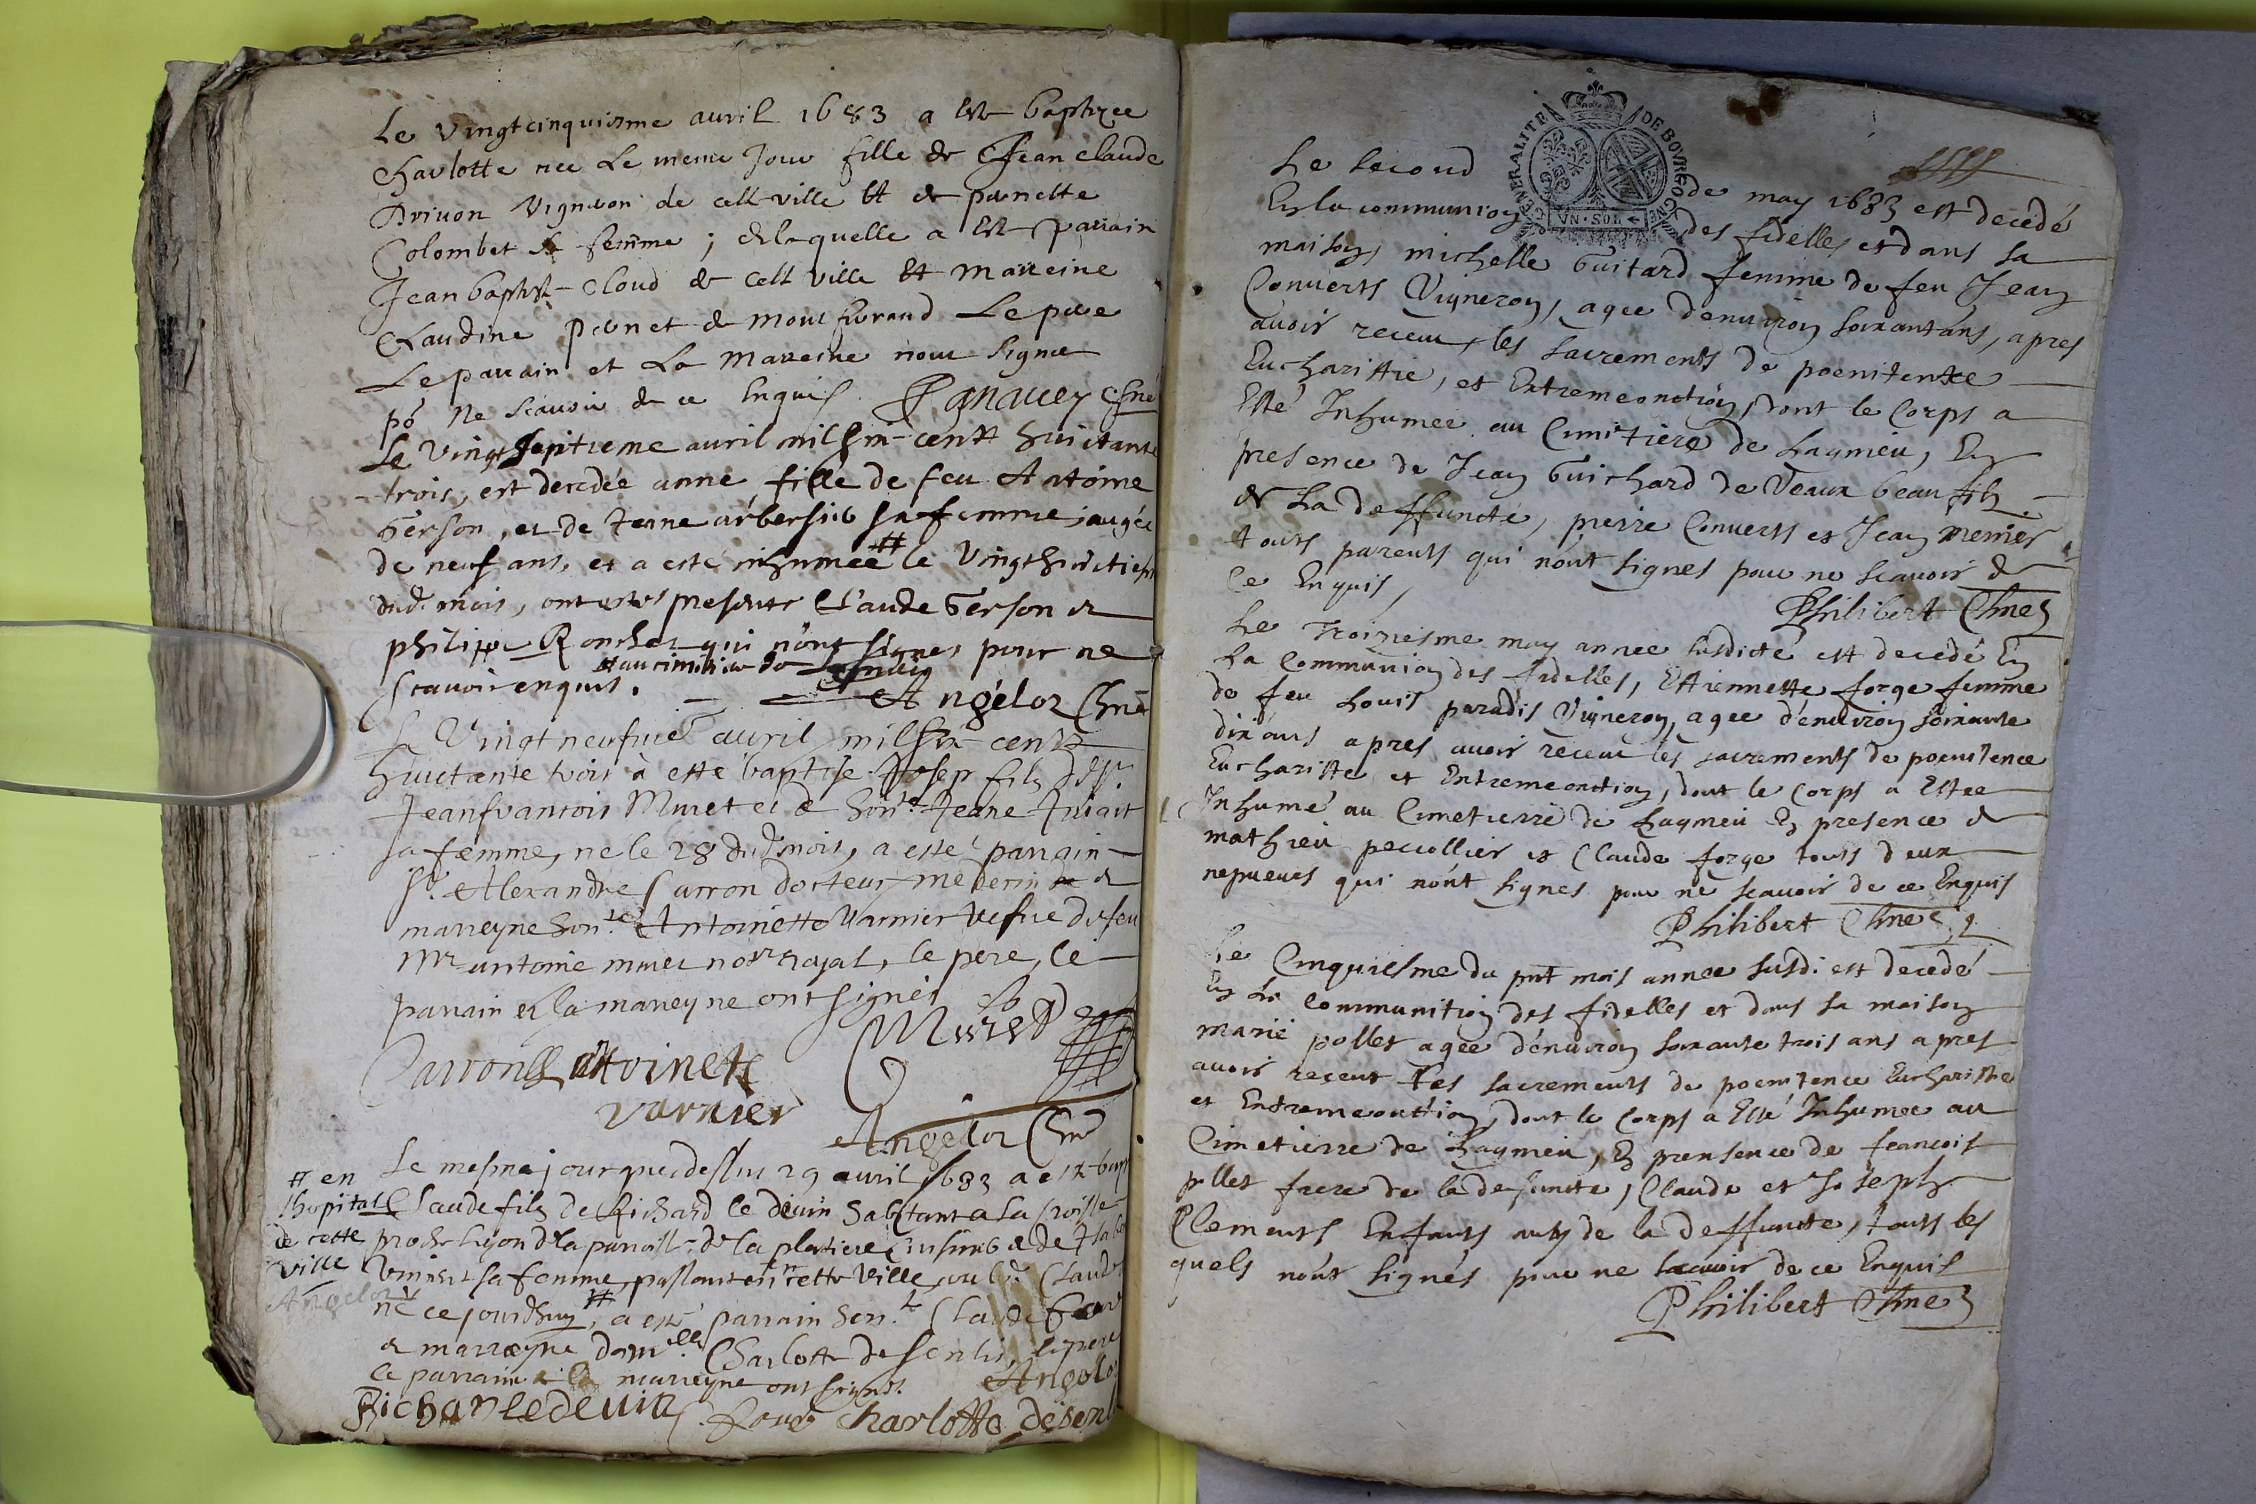 Le vingtcinquiesme avril 1683 a este baptizee
Charlotte nee le meme jour fille de Jean Claude
Drivon vigneron de cette ville et de pernette
Colombet sa femme ; de laquelle a este parrain
Jean baptiste Cloud de cette ville et marreine
Claudine pernet de montferrand Le pere
Le parrain et La marreine nont signe
po ne scavoir de ce enquis Panavey Chne
Le vingt septieme avril mil six cent huictante
trois, est decedée anne fille de feu Antoine
Gerson, et de Jeanne sa femme, augée
de neuf ans, et a esté inhumée # le vingt huictiesme
dud. mois, ont estes presents Claude Gerson et
philippe Ronchet qui n'ont signes pour ne
scavoir enquis. # au cimitiere de Laymeu
Angelot Chne
Le vingt neufvie avril mil six cents
huictante trois à esté baptise Josep fils de Sr
Jean francois Muret et de hon.te Jeanne
sa femme, ne le 28 dud. mois, a esté parrain
Sr. Alexandre Carron docteur medecin &
marreyne hon.te Antoinette Varnier vefve de feu
Mr antoine muret no.re royal, le pere, le
parrain et la marreyne ont signés
Muret
Carron Antoinete
varnier
Angelot Chne
Le mesme jour que dessus 29 avril 1683 a este bap
# en Claude fils de Richard le devin habitant a la
lhopital
de cette proche Lyon de la paroisse de la platiere & de
ville sa femme, passant en cette ville, Claude
Angelot né ce jourdhuy #, a esté parrain hon.
& marreyne dom.elle Charlotte de senlis, le pere
le parrain & la marreyne ont signés. Angelot
Richar ledevin Charlotte desenl
GENERALITE DE BOURGOGNE
UN·SOL
Le second de may 1683 est decedé
En la communion des fidelles et dans sa
maison michelle Guitard femme de feu Jean
Converts Vigneron, agee denviron soixantans, apres
avoir receu, les sacrements de poenitente
Eucharistie, et Extremeonction, dont le Corps a
Esté Inhumee au Cimitiere de Laymeu, En
presence de Jean Guichard de Veaux beau fils
de La deffuncte, pierre Converts et Jean menier
touts parents qui nont signes pour ne scavoir de
ce Enquis,
Philibert Chne
Le Troiziesme may annee susdicte est decedé En
La Communion des fidelles, Estiennette forge femme
de feu Louis paradis Vigneron, agee d'environ soixante
dix ans apres avoir receu les sacrements de poenitence
Eucharistie et Extremeonction, dont le corps a Estee
Inhumé au Cimetierre de Laymeu En presence de
mathieu peccollier et Claude forge touts deux
nepveus qui nont signes pour ne scavoir de ce Enquis
Philibert Chne
Le Cinquiesme du pnt mois annee susd. est decedé
En La Communition des fidelles et dans sa maison
marie pollet agee d'environ soixante trois ans apres
avoir receut les sacrements de poenitence Eucharistie
et Extremeonction, dont le corps a Esté Inhumee au
Cimetierre de Laymeu, En prensence de francois
pollet frere de la defuncte, Claude et Joseph
Clements Enfants de la deffuncte, touts les
quels nont signés pour ne scavoir de ce Enquis
Philibert Chne